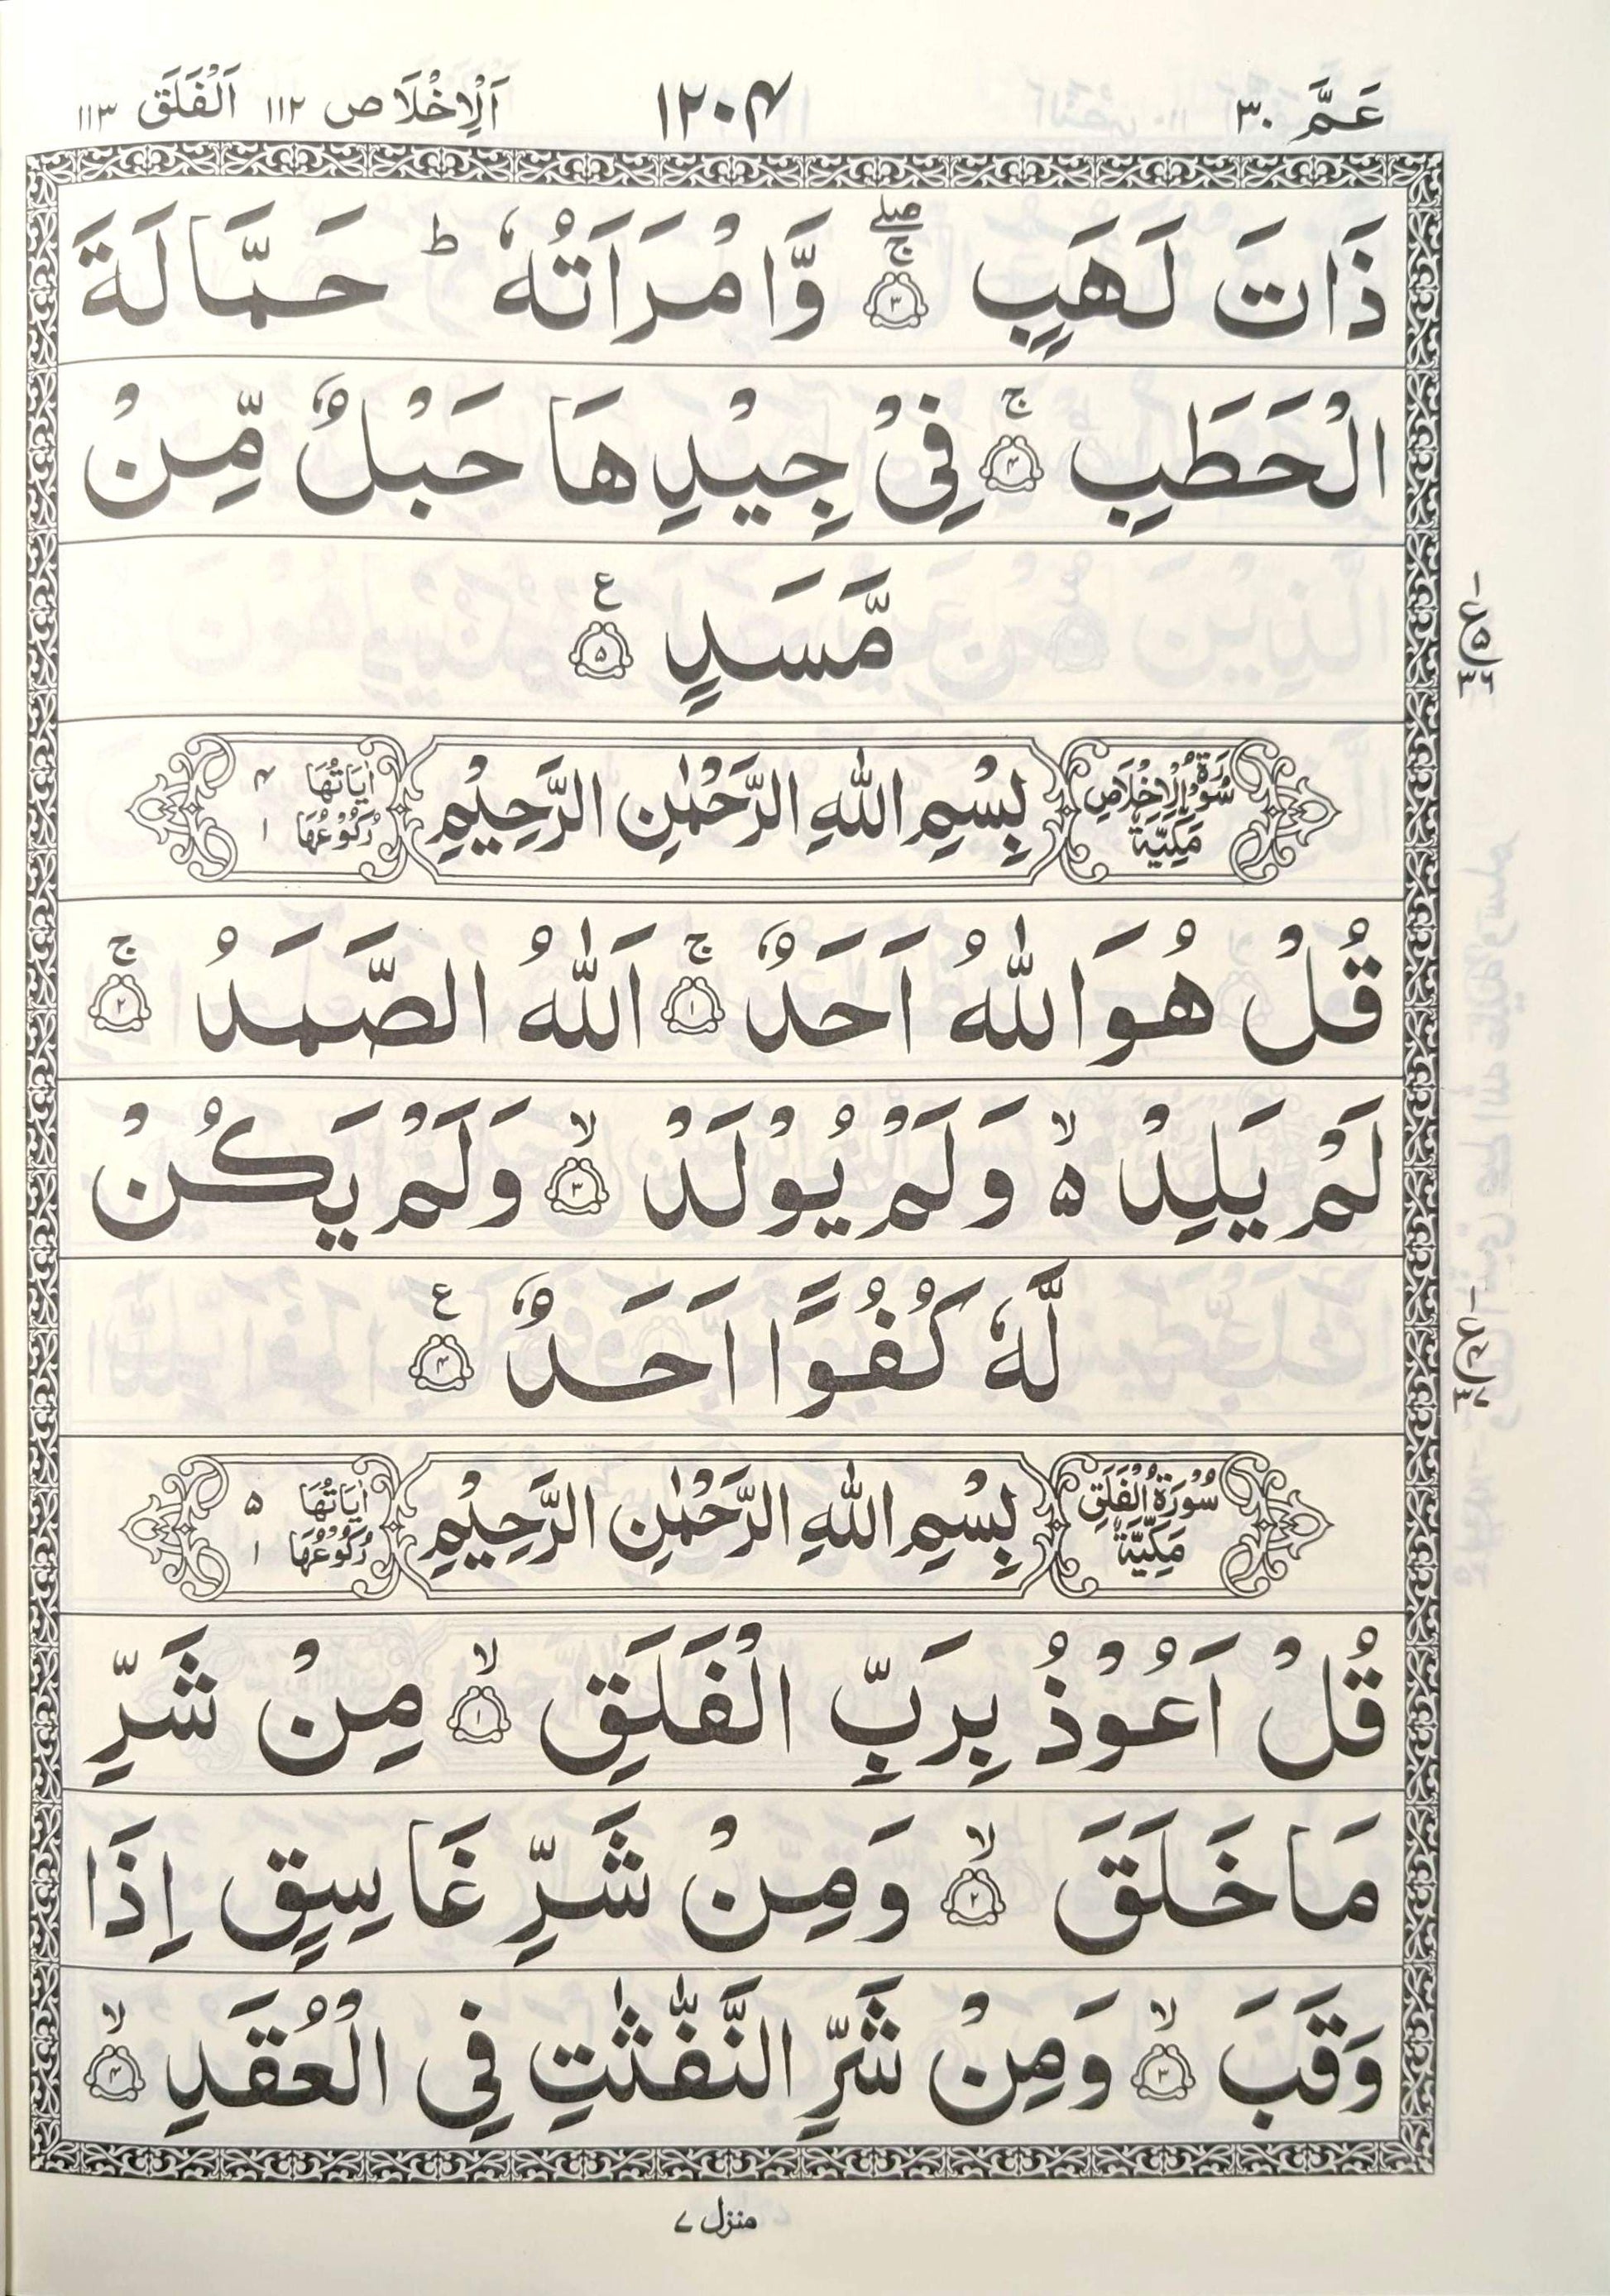 عَمَّ ٣٠
١٢٠٤
اَلْاِخْلَاص ١١٢ اَلْفَلَق ١١٣
ذَاتَ لَهَبٍ ۚۖ ۝٣ وَّامْرَاَتُهٗ ؕ حَمَّالَةَ
الْحَطَبِ ۚ ۝٤ فِىْ جِيْدِهَا حَبْلٌ مِّنْ
مَّسَدٍ ۝٥ ع
سُوْرَةُ الْاِخْلَاصِ مَكِّيَّةٌ
بِسْمِ اللّٰهِ الرَّحْمٰنِ الرَّحِيْمِ
اٰيَاتُهَا ٤
رُكُوْعُهَا ١
قُلْ هُوَ اللّٰهُ اَحَدٌ ۚ ۝١ اَللّٰهُ الصَّمَدُ ۚ ۝٢
لَمْ يَلِدْ ۙ۵ وَلَمْ يُوْلَدْ ۙ ۝٣ وَلَمْ يَكُنْ
لَّهٗ كُفُوًا اَحَدٌ ۝٤ ع
سُوْرَةُ الْفَلَقِ مَكِّيَّةٌ
بِسْمِ اللّٰهِ الرَّحْمٰنِ الرَّحِيْمِ
اٰيَاتُهَا ٥
رُكُوْعُهَا ١
قُلْ اَعُوْذُ بِرَبِّ الْفَلَقِ ۙ ۝١ مِنْ شَرِّ
مَا خَلَقَ ۙ ۝٢ وَمِنْ شَرِّ غَاسِقٍ اِذَا
وَقَبَ ۙ ۝٣ وَمِنْ شَرِّ النَّفّٰثٰتِ فِى الْعُقَدِ ۙ ۝٤
منزل ٧